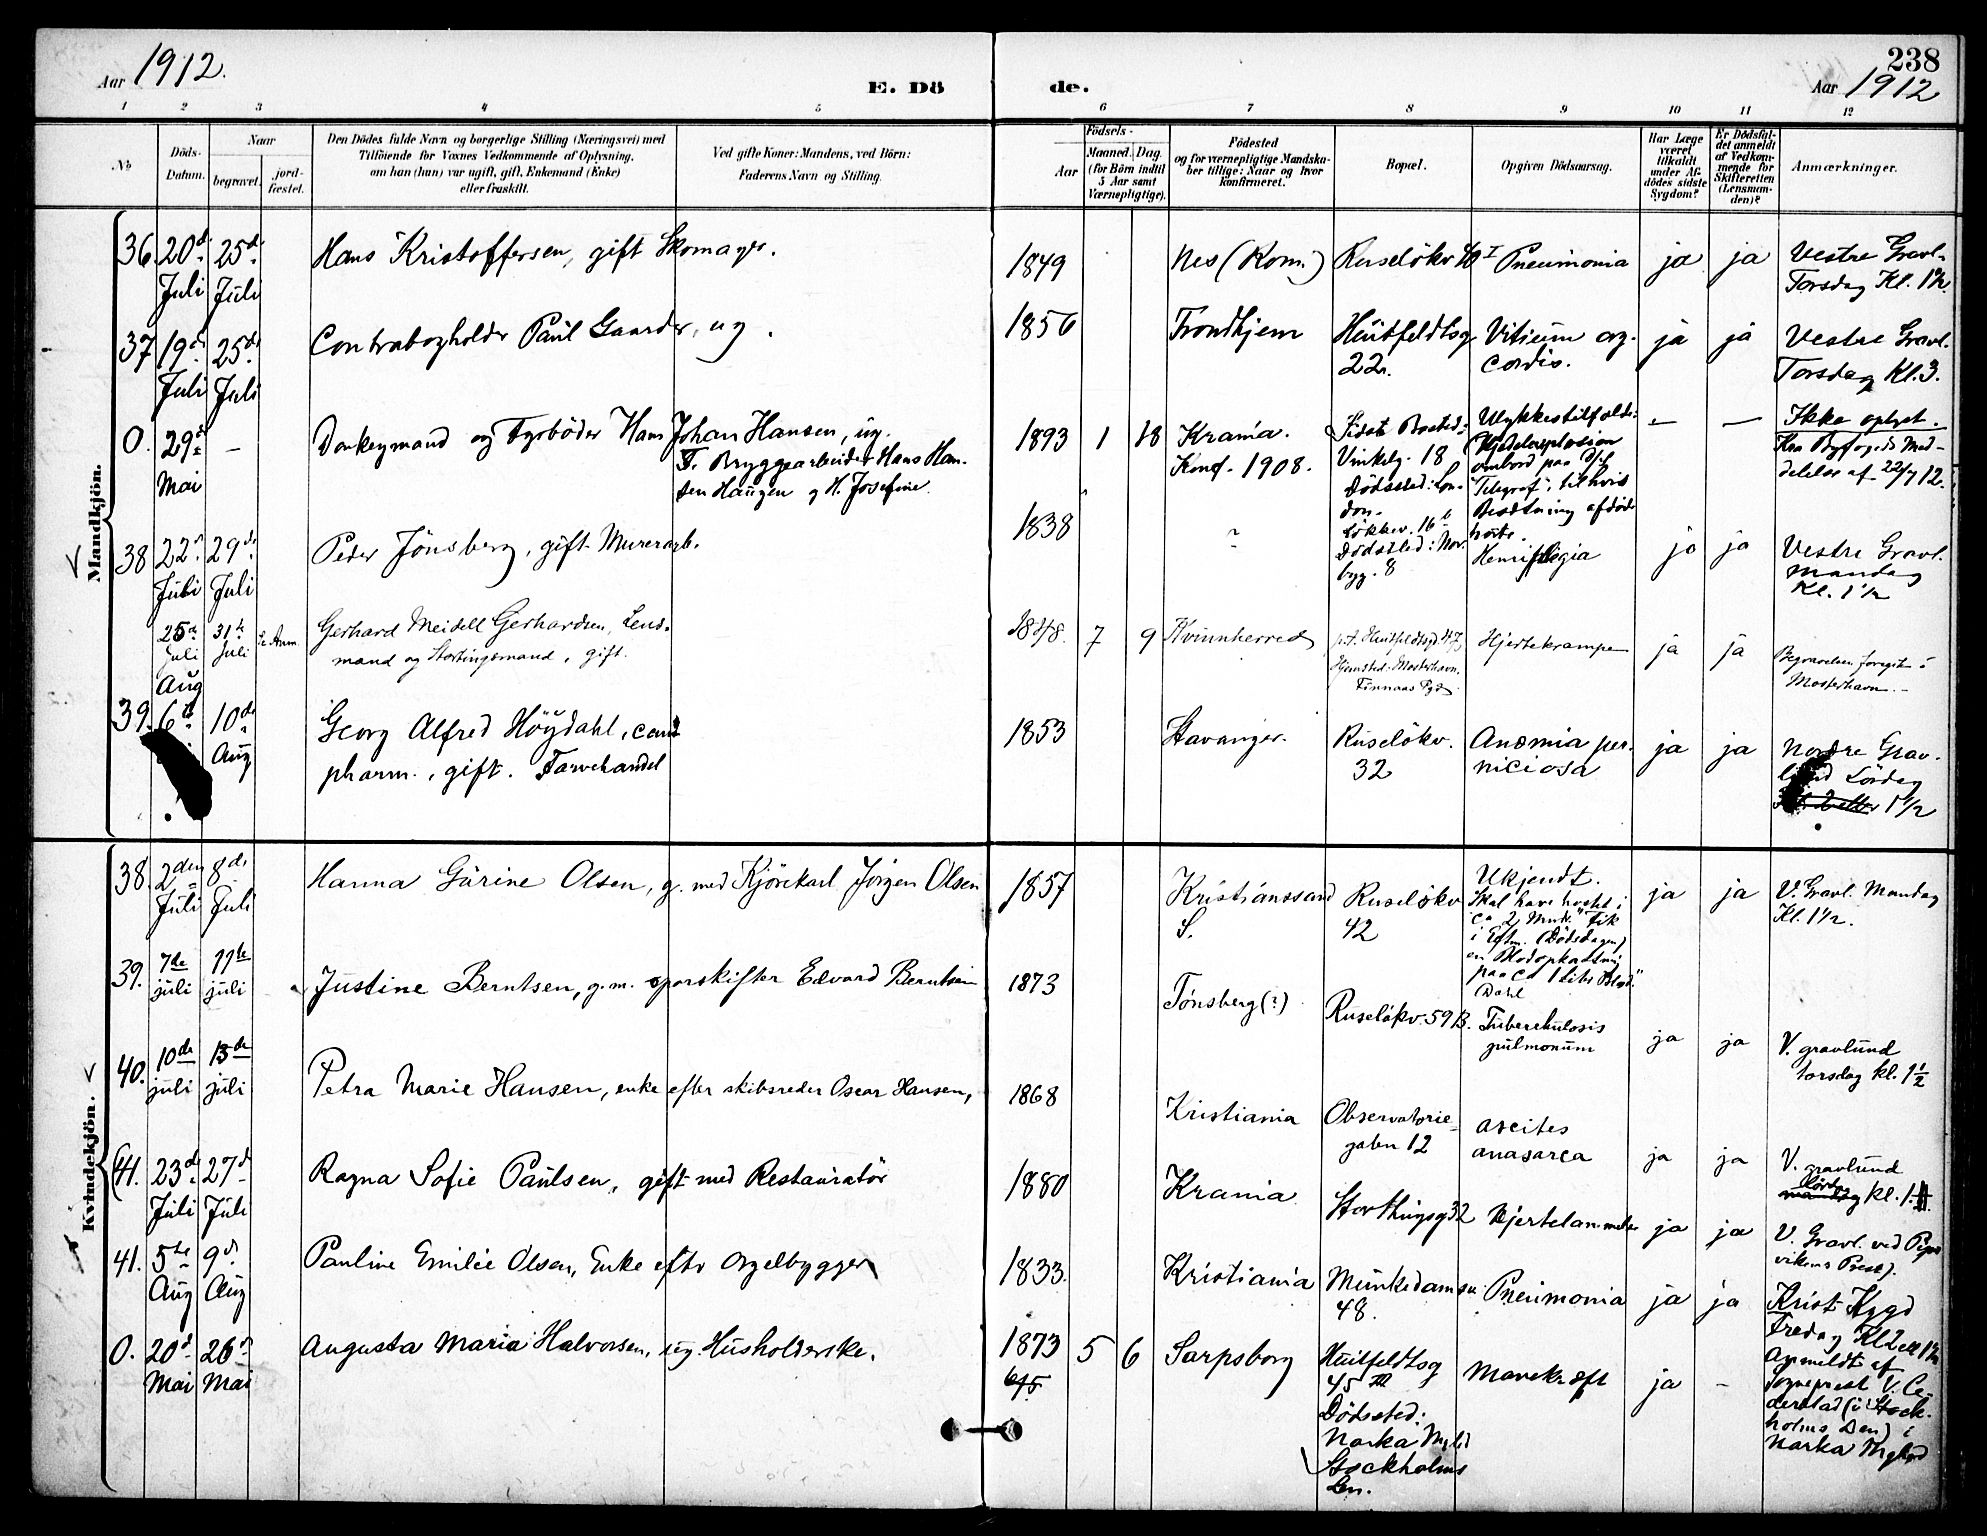 238
Aar 1912.
E. Dö
de.
Aar 1912
1 2 3 4 5 6 7 8 9 10 11 12
No
Döds-
Datum.
Naar
begravet.
jord-
fæstet.
Den Dödes fulde Navn og borgerlige Stilling (Næringsvei) med
Tilföiende for Voxnes Vedkommende af Oplysning,
om han (hun) var ugift, gift, Enkemand (Enke)
eller fraskilt.
Ved gifte Koner: Mandens, ved Börn:
Faderens Navn og Stilling.
Födsels-
Aar
Maaned. Dag.
(for Börn indtil
5 Aar samt
Værnepligtige).
Födested
og for værnepligtige Mandska-
ber tillige: Naar og hvor
konfirmeret.
Bopæl.
Opgiven Dödsaarsag.
Har Læge
været
tilkaldt
under Af-
dödes sidste
Sygdom?
Er Dödsfal-
det anmeldt
af Vedkom-
mende for
Skifteretten
(Lensman-
den)?
Anmærkninger.
Mandkjön.
36. 20d Juli 25d Juli
Hans Kristoffersen, gift Skomager.
1849
Nes (Rom.)
Ruselökv. 40 I
Pneumonia
ja ja
Vestre Gravl.
Torsdag Kl. 1½.
37 19d Juli 25d Juli
Contrabogholder Paul Gaarder, ug.
1856
Trondhjem
Huitfeldtsg
22.
Vitium org.
cordis.
ja ja
Vestre Gravl.
Torsdag Kl. 3.
0. 29d Mai –
Donkeymand og Fyrböder Hans Johan Hansen, ug.
F. Bryggearbeider Hans Han-
sen Haugen og H. Josefine.
1893 1 18
Krania.
Konf. 1908.
Sidste Bosted:
Vinkelg. 18
Dödssted: Lon-
don.
Ulykkestilfælde:
(Kjedelexplosion
ombord paa D/S
"Telegraf", til hvis
Besætning afdöde
hörte.
— —
Ikke oplyst.
Kra Byfogeds Med-
delelse af 22/7 12.
38 22d Juli 29de Juli
Peder Jönsberg, gift Murerarb.
1838
?
Lökkev. 16b
Dödssted: Nor.
byg. 8
Hemiplegia
ja ja
Vestre Gravl.
Mandag
Kl. 1½
25de Juli 31te Juli
Se Anm.
Gerhard Meidell Gerhardsen, Lens-
mand og Stortingsmand, gift.
1848. 7 9
Kvinnherred
p.t. Huitfeldtsgd 47,
Hjemsted: Mosterhavn,
Finnaas Pgd.
Hjertekrampe
ja ja
Begravelsen foregik i
Mosterhavn.
39. Aug 6te 10de Aug
Georg Alfred Höydahl, cand
pharm., gift. Farvehandel
1853
Stavanger.
Ruselökv.
32
Anæmia per-
niciosa
ja ja
Nordre Grav-
lund Lördag
1½
Kvindekjön.
38. 2den Juli 8de Juli
Hanna Gurine Olsen, g. med Kjörekarl Jörgen Olsen
1857
Kristianssand
S.
Ruselökv
42
Ukjendt.
Skal have hostet i
ca 2 Mndr. "Fik
i Eftm. (Dödsdagen)
en Blodopkastning
paa ca 1 Liter Blod."
Dahl
ja ja
V. Gravl. Mandag
Kl. 1½.
39. 7de juli 11te juli
Justine Berntsen, g.m. sporskifter Edvard Berntsen
1873
Tönsberg (?)
Ruselökv. 59 B.
Tuberkulosis
pulmonum
ja ja
V. gravlund
torsdag kl. 1½
40. 10de juli 15de juli
Petra Marie Hansen, enke efter skibsreder Oscar Hansen,
1868
Kristiania
Observatorie-
gaten 12
ascites
anasarca
ja ja
V. gravlund
mandag kl. 1.
41. 23d Juli 27d Juli
Ragna Sofie Paulsen, gift med Restauratör
1880
Krania
Storthingsg 32
Hjertelammelse
ja ja
V. Gravl. ved Piper
vikens Prest).
41. 5te Aug 9d Aug
Pauline Emilie Olsen, Enke efter Orgelbygger
1833.
Kristiania
Munkedamsv.
48.
Pneumonia
ja ja
Krist Kygd
Fredag Kl 2 1½
0. 20d Mai 26d Mai
Augusta Maria Halvorsen, ug. Husholderske.
1873 5 6
6/5
Sarpsborg
Huitfeldtsg
45 III
Dödssted:
Nacka
Stockholms
Len.
Marekræft
ja –
Anmeldt af
Sogneprest V. Ce-
derblad (i Stock-
holms Len) i
Nacka